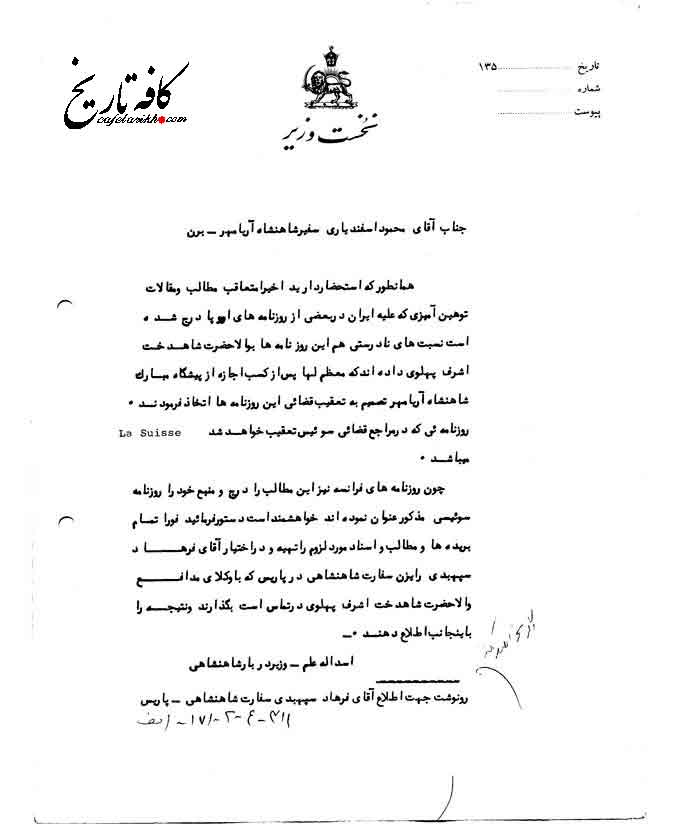 کافه تاریخ
cafetarikh.com
نخست وزیر
تاریخ ........................ ۱۳۵
شماره ........................
پیوست ........................
جناب آقای محمود اسفندیاری سفیر شاهنشاه آریامهر ــ برن
همانطور که استحضار دارید اخیرا متعاقب مطالب و مقالات
توهین آمیزی که علیه ایران در بعضی از روزنامه های اروپا درج شده
است نسبت های نادرستی هم این روزنامه ها بوالاحضرت شاهدخت
اشرف پهلوی داده اند که معظم لها پس از کسب اجازه از پیشگاه مبارک
شاهنشاه آریامهر تصمیم به تعقیب قضائی این روزنامه ها اتخاذ فرمودند .
روزنامه ئی که در مراجع قضائی سوئیس تعقیب خواهد شد La Suisse
میباشد .
چون روزنامه های فرانسه نیز این مطالب را درج و منبع خود را روزنامه
سوئیسی مذکور عنوان نموده اند خواهشمند است دستور فرمائید فورا تمام
بریده ها و مطالب و اسناد مورد لزوم را تهیه و در اختیار آقای فرهاد
سپهبدی رایزن سفارت شاهنشاهی در پاریس که با وکلای مدافع
والاحضرت شاهدخت اشرف پهلوی در تماس است بگذارند و نتیجه را
باینجانب اطلاع دهند .ــ
اسداله علم ــ وزیر دربار شاهنشاهی
رونوشت جهت اطلاع آقای فرهاد سپهبدی سفارت شاهنشاهی ــ پاریس